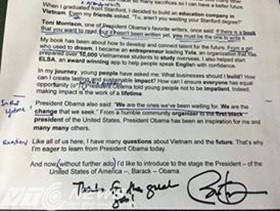 to make many sacrifices so I can have a
When I graduated from Stanford, I decided to build an education company in
Vietnam. Even my friends asked "Tu, aren't you wasting your Stanford degree?"
Toni Morrison, one of President Obama's favorite writers, once said if there is a book
that you want to read but it hasn't been written yet, you must be the one to write it.
My book has been about how to develop and connect talent for the future. From a girl
who used to dream, I became an entrepreneur leading YOLA, an organisation that has
prepared over 50,000 Vietnamese students to study overseas. I also helped start
ELSA, an award winning app to help people speak English with confidence.
In my journey, young people have asked me: What businesses should I build? How
can I create lasting and sustainable impact? How can I ensure everyone has equal
opportunity to President Obama told young people not to be impatient. Indeed,
making impact is slow work and constant work.
In that
spirit,
President Obama also said "We are the ones we've been waiting for. We are the
change that we seek." From a humble community organiser to the first black
president of the United States, President Obama has been an inspiration for me and
many many others.
Like all of us here, I have many questions about Vietnam and the future. That's why
I'm eager to learn from President Obama today.
And now (without further ado) I'd like to introduce to the stage the President – of the
United States of America –, Barack – Obama.
Thanks for the great
job!
VTC NEWS